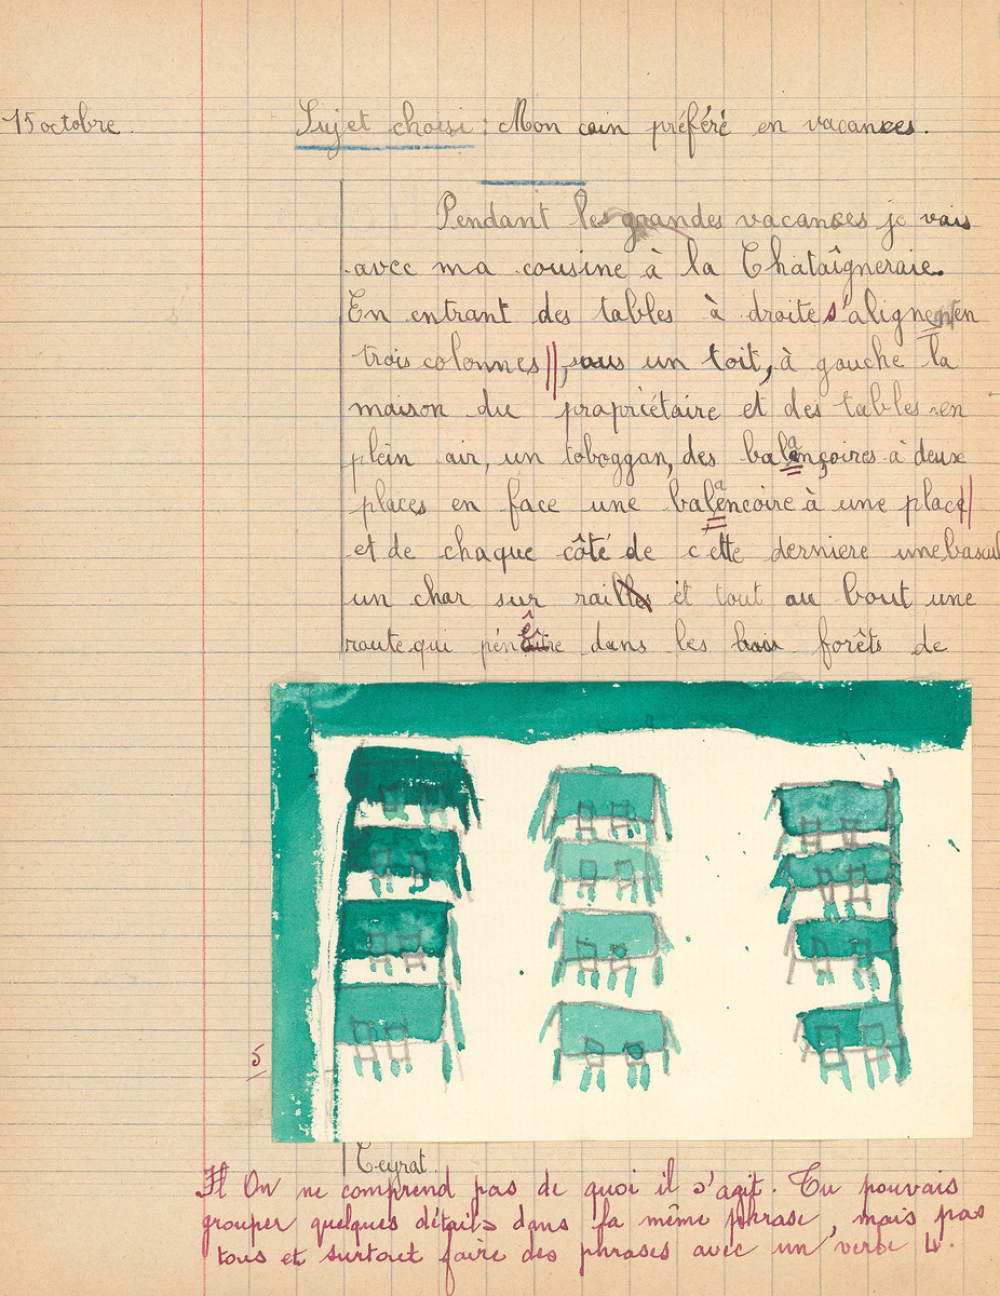 15 octobre
Sujet choisi : Mon coin préféré en vacances.
Pendant les grandes vacances je vais
avec ma cousine à la Chataîgneraie.
En entrant des tables à droite s'alignent en
trois colonnes, sous un toit, à gauche la
maison du propriétaire et des tables en
plein air, un toboggan, des balançoires à deux
places en face une balançoire à une place
et de chaque côté de cette derniere une bascul
un char sur rails et tout au bout une
route qui pénètre dans les bois forêts de
5
Ceyrat.
On ne comprend pas de quoi il s'agit. Tu pouvais
grouper quelques détails dans la même phrase, mais pas
tous et surtout faire des phrases avec un verbe